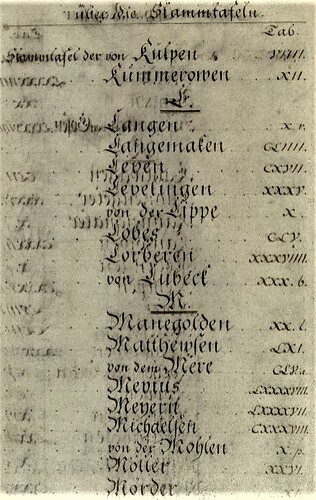 über die Stammtafeln.
Tab.
Stammtafel der von Kulpen VIIII.
Kummerowen XII.
L.
Langen X.v.
Langemaken CLIIII.
Leyen CXVII.
Levetingen XXXV.
von der Lippe X.
Lobes CLV.
Lorberen XXXVIIII.
von Lübeck XXX.b.
M.
Manegolden XX.l.
Matthewsen LXI.
von dem Mere CLV.a
Mevius LXXXVIII.
Meyern LXXXVII.
Michaelsen CXXXVIII.
von der Mohlen X.p.
Moller XXVI.
Mörder